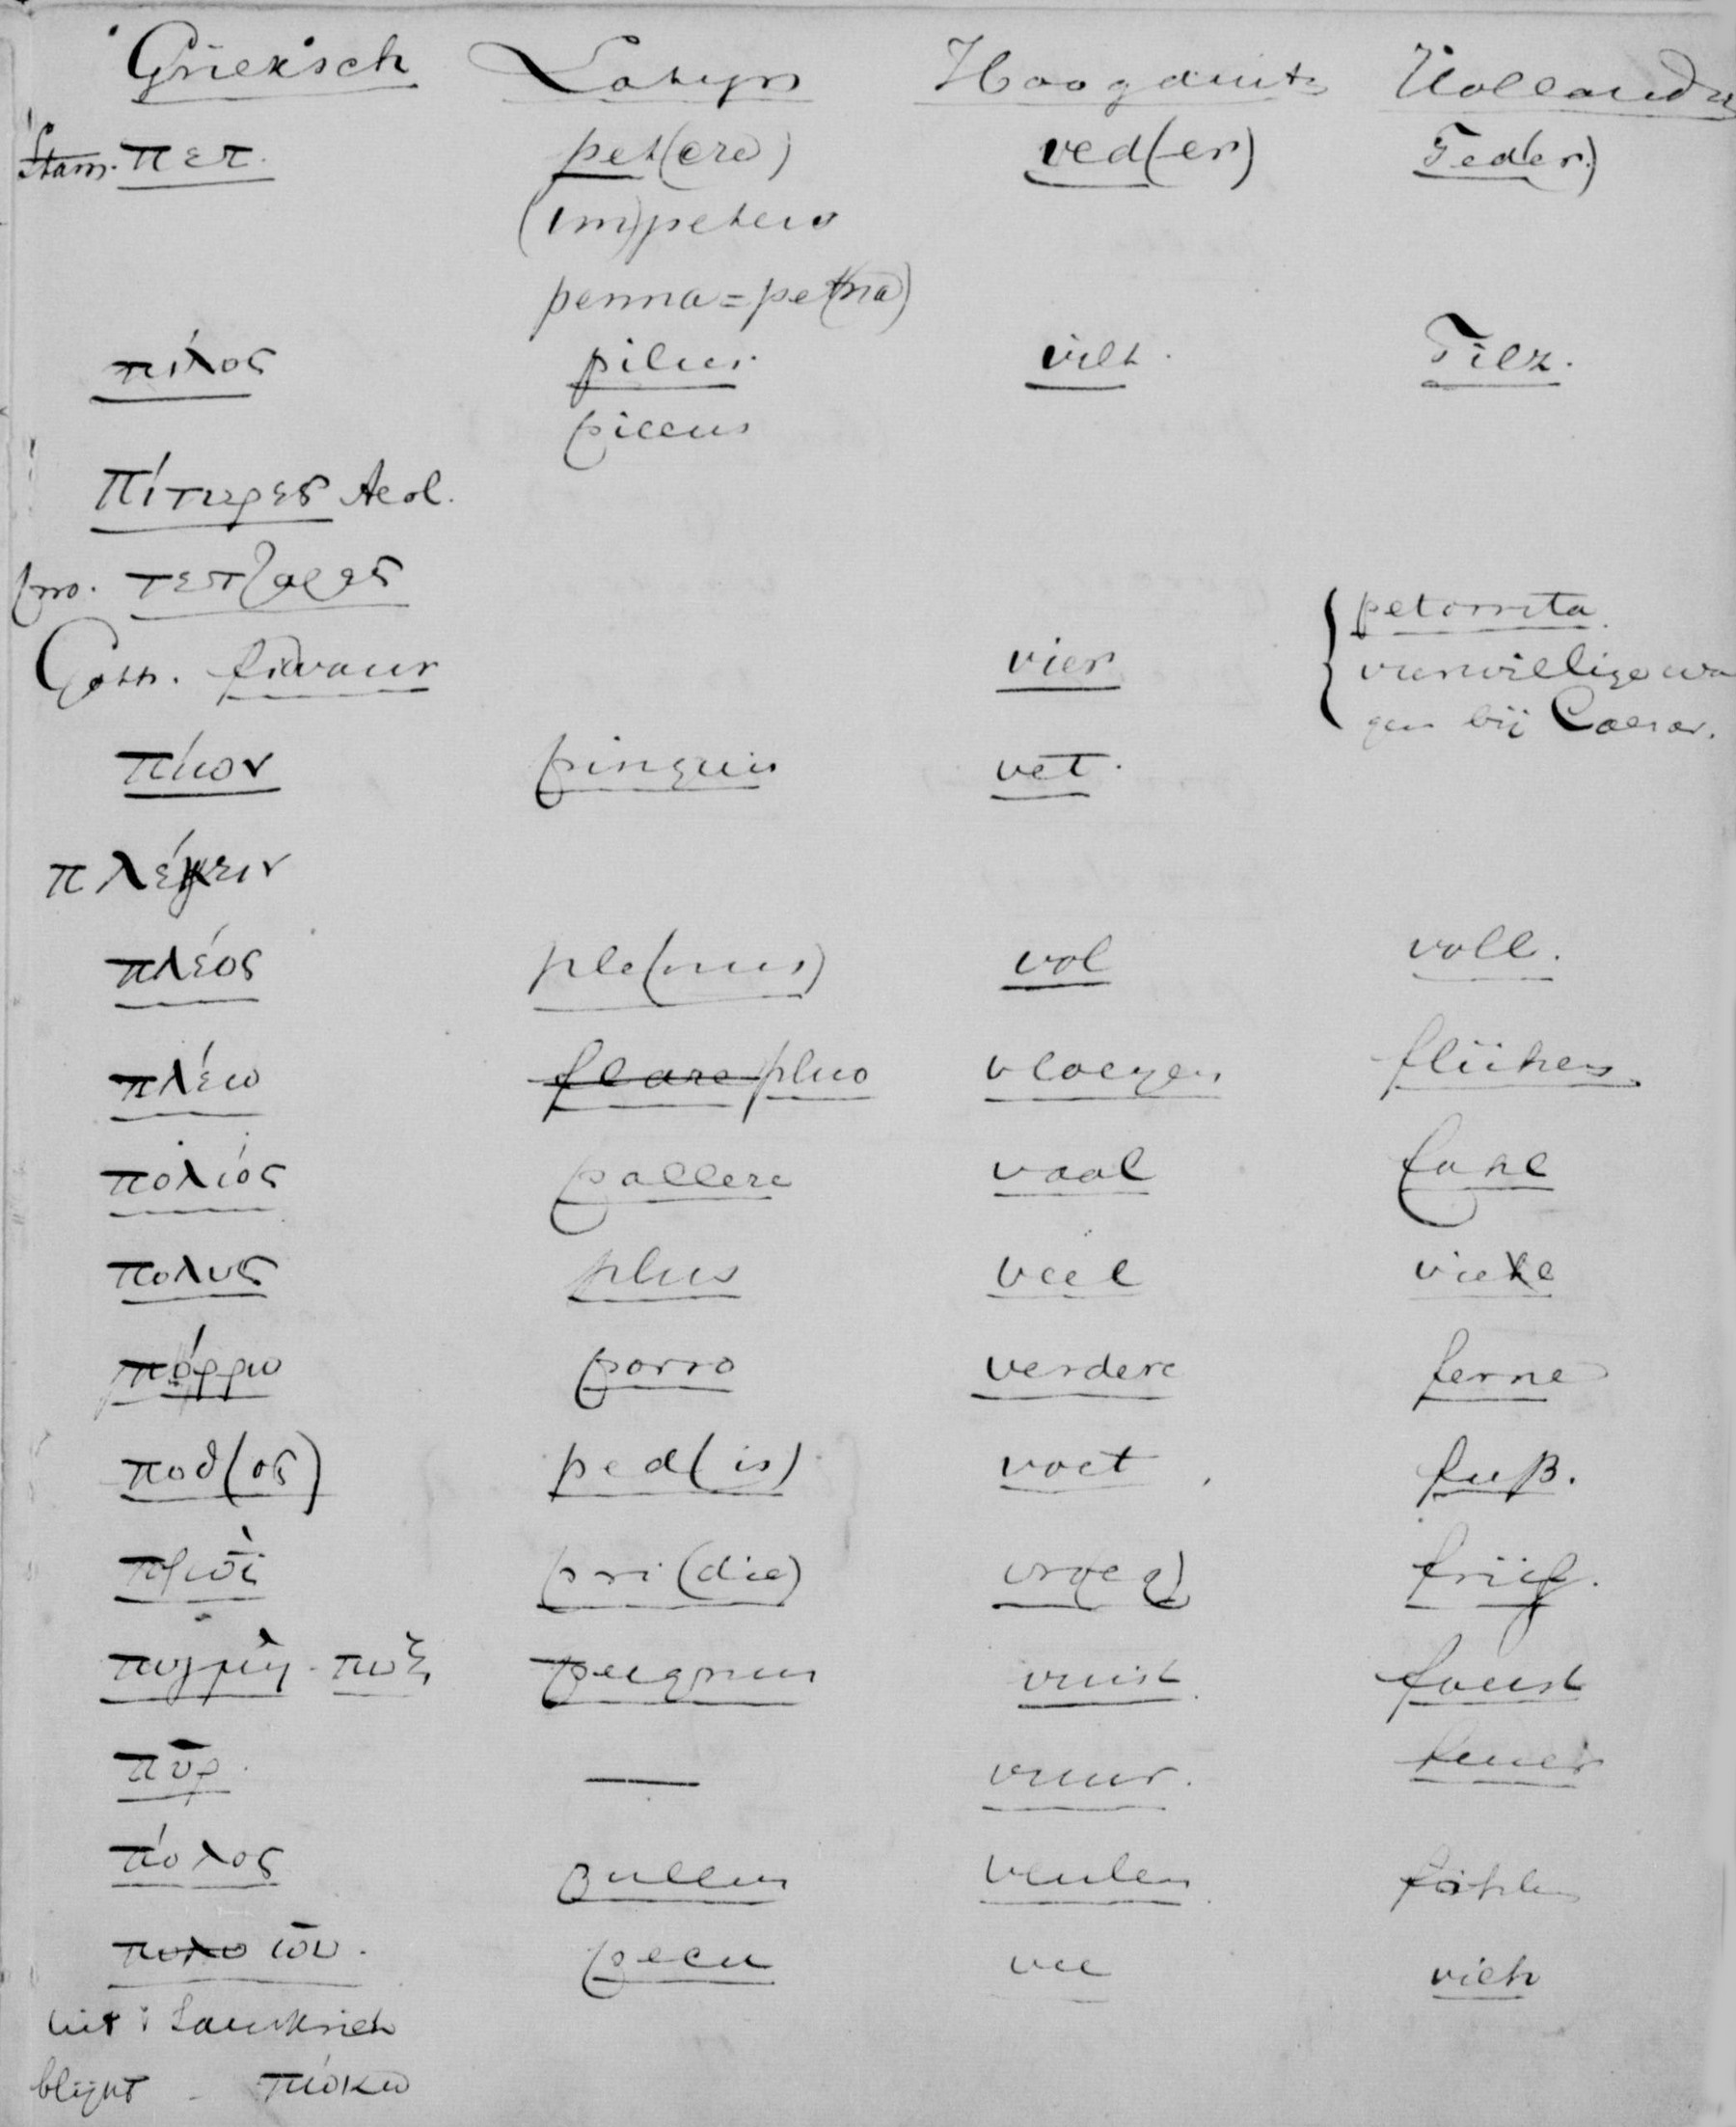 Grieksch Latijn Hoogduits Hollands
Stam. πετ. pet(ere) ved(er) Feder.)
(im)petus
penna = pe(tna)
πῖλος pilus vilt. Filz.
pileus
πίτυρες Aeol.
pro. τετταρες petorrita
Goth. fidvaur vier vierwielige wa
gen bij Caesar.
πίων pinguis vet.
πλέκειν
πλέος ple(nus) vol voll.
πλέω flare pluo vloeyen
πολιός pallere vaal fahl
πολυς plus veel viele
πόρρω porro verdere ferne
ποδ(ος) ped(is) voet fuß.
πρωῒ pri(die) vroeg früh.
πυγμὴ - πυξ pugnus vuist faust
πῦρ. — vuur. feuer
πόλος pullus veulen fohlen
πωυ. pecu vee vieh
uit: Sanskrich
blijkt - πίσκω